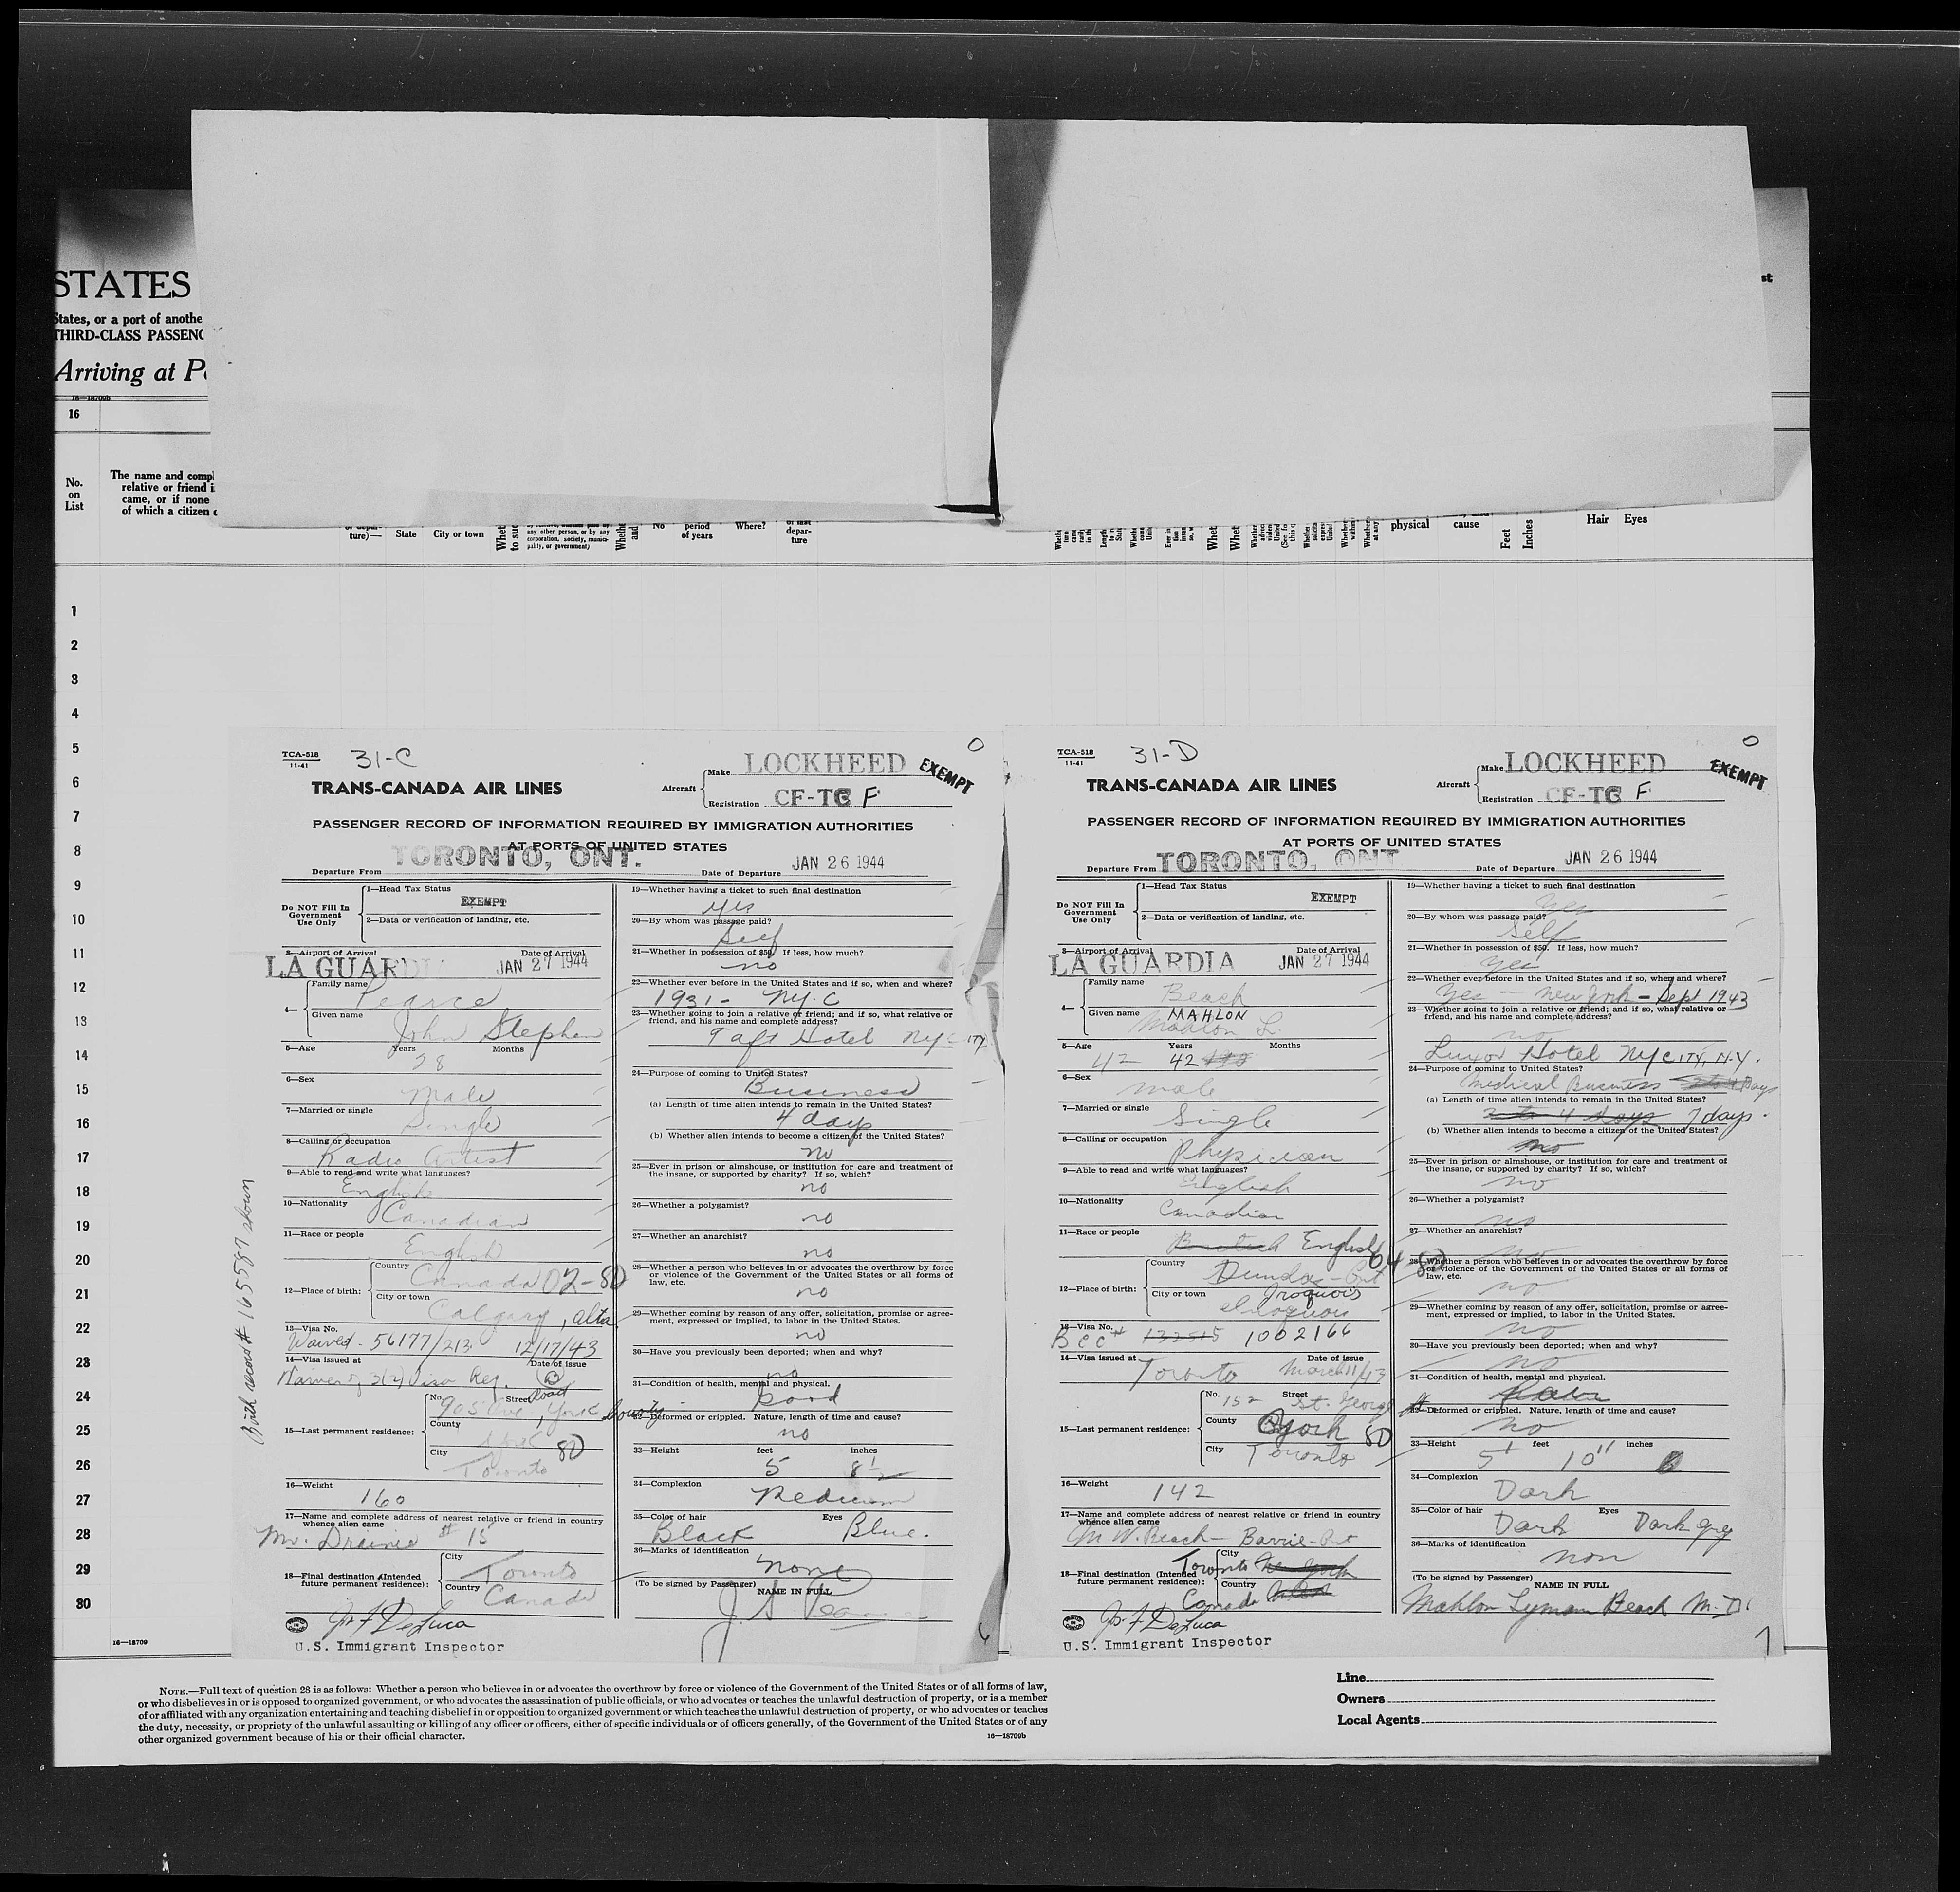 STATES
States, or a port of anothe
THIRD-CLASS PASSENG
Arriving at P
16—18709b
16
No.
on
List
The name and compl
relative or friend i
came, or if none
of which a citizen c
ture)—
State
City or town
any other person, or by any
corporation, society, munici-
pality, or government)
No
period
of years
Where?
of last
depar-
ture
physical
cause
Feet
Inches
Hair
Eyes
st
1
2
3
4
5
6
7
8
9
10
11
12
13
14
15
16
17
18
19
20
21
22
23
24
25
26
27
28
29
30
16—18709
Birth record # 165587 shown
TCA-518
11-41
31-C
0
TRANS-CANADA AIR LINES
Aircraft
Make LOCKHEED
Registration CF-TC F
EXEMPT
PASSENGER RECORD OF INFORMATION REQUIRED BY IMMIGRATION AUTHORITIES
AT PORTS OF UNITED STATES
Departure From TORONTO, ONT.
Date of Departure JAN 26 1944
Do NOT Fill In
Government
Use Only
1—Head Tax Status
EXEMPT
2—Data or verification of landing, etc.
3—Airport of Arrival
Date of Arrival
LA GUARDI
JAN 27 1944
4—
Family name Pearce
Given name John Stephen
5—Age Years Months
28
6—Sex
Male
7—Married or single
Single
8—Calling or occupation
Radio Artist
9—Able to read and write what languages?
English
10—Nationality
Canadian
11—Race or people
English
12—Place of birth:
Country Canada 02-80
City or town Calgary, Alta
13—Visa No.
Waived - 56177/213 12/17/43
14—Visa issued at
Date of issue
Waiver of 2(2) Visa Reg.
15—Last permanent residence:
No. Street Road
905 Ave, York County
County
City
Toronto 80
16—Weight
160
17—Name and complete address of nearest relative or friend in country
whence alien came
Mr. Drainie # 15
18—Final destination (Intended
future permanent residence):
City Toronto
Country Canada
J. F. DeLuca
U.S. Immigrant Inspector
19—Whether having a ticket to such final destination
yes
20—By whom was passage paid?
Self
21—Whether in possession of $50. If less, how much?
no
22—Whether ever before in the United States and if so, when and where?
1931 - N.Y.C
23—Whether going to join a relative or friend; and if so, what relative or
friend, and his name and complete address?
Taft Hotel NY CITY
24—Purpose of coming to United States?
Business
(a) Length of time alien intends to remain in the United States?
4 days
(b) Whether alien intends to become a citizen of the United States?
no
25—Ever in prison or almshouse, or institution for care and treatment of
the insane, or supported by charity? If so, which?
no
26—Whether a polygamist?
no
27—Whether an anarchist?
no
28—Whether a person who believes in or advocates the overthrow by force
or violence of the Government of the United States or all forms of
law, etc.
no
29—Whether coming by reason of any offer, solicitation, promise or agree-
ment, expressed or implied, to labor in the United States.
no
30—Have you previously been deported; when and why?
no
31—Condition of health, mental and physical.
good
32—Deformed or crippled. Nature, length of time and cause?
no
33—Height feet inches
5 8½
34—Complexion
Medium
35—Color of hair Eyes
Black Blue.
36—Marks of identification
none
(To be signed by Passenger)
NAME IN FULL
J. S. Pearce
6
TCA-518
11-41
31-D
0
TRANS-CANADA AIR LINES
Aircraft
Make LOCKHEED
Registration CF-TC F
EXEMPT
PASSENGER RECORD OF INFORMATION REQUIRED BY IMMIGRATION AUTHORITIES
AT PORTS OF UNITED STATES
Departure From TORONTO, ONT
Date of Departure JAN 26 1944
Do NOT Fill In
Government
Use Only
1—Head Tax Status
EXEMPT
2—Data or verification of landing, etc.
3—Airport of Arrival
Date of Arrival
LA GUARDIA
JAN 27 1944
4—
Family name Beach
Given name MAHLON
Mahlon L.
5—Age Years Months
42 42
6—Sex
male
7—Married or single
Single
8—Calling or occupation
Physician
9—Able to read and write what languages?
English
10—Nationality
Canadian
11—Race or people
British English
12—Place of birth:
Country Dundas - Ont 04-80
City or town Iroquois
Iroquois
13—Visa No.
Bcc# 132515 1002166
14—Visa issued at
Date of issue
Toronto March 11/43
15—Last permanent residence:
No. Street
152 St. George St.
County York 80
City Toronto
16—Weight
142
17—Name and complete address of nearest relative or friend in country
whence alien came
M W. Beach - Barrie - Ont
18—Final destination (Intended
future permanent residence):
City Toronto New York
Country Canada
J. F. DeLuca
U.S. Immigrant Inspector
19—Whether having a ticket to such final destination
Yes
20—By whom was passage paid?
Self
21—Whether in possession of $50. If less, how much?
Yes
22—Whether ever before in the United States and if so, when and where?
Yes - New York - Sept 1943
23—Whether going to join a relative or friend; and if so, what relative or
friend, and his name and complete address?
no
Luxor Hotel NY CITY, N.Y.
24—Purpose of coming to United States?
Medical Business Days
(a) Length of time alien intends to remain in the United States?
4 days 7 days.
(b) Whether alien intends to become a citizen of the United States?
no
25—Ever in prison or almshouse, or institution for care and treatment of
the insane, or supported by charity? If so, which?
no
26—Whether a polygamist?
no
27—Whether an anarchist?
no
28—Whether a person who believes in or advocates the overthrow by force
or violence of the Government of the United States or all forms of
law, etc.
no
29—Whether coming by reason of any offer, solicitation, promise or agree-
ment, expressed or implied, to labor in the United States.
no
30—Have you previously been deported; when and why?
no
31—Condition of health, mental and physical.
32—Deformed or crippled. Nature, length of time and cause?
no
33—Height feet inches
5' 10"
34—Complexion
Dark
35—Color of hair Eyes
Dark Dark grey
36—Marks of identification
non
(To be signed by Passenger)
NAME IN FULL
Mahlon Lyman Beach M.D.
7
NOTE.—Full text of question 28 is as follows: Whether a person who believes in or advocates the overthrow by force or violence of the Government of the United States or of all forms of law,
or who disbelieves in or is opposed to organized government, or who advocates the assassination of public officials, or who advocates or teaches the unlawful destruction of property, or is a member
of or affiliated with any organization entertaining and teaching disbelief in or opposition to organized government or which teaches the unlawful destruction of property, or who advocates or teaches
the duty, necessity, or propriety of the unlawful assaulting or killing of any officer or officers, either of specific individuals or of officers generally, of the Government of the United States or of any
other organized government because of his or their official character.
16—18709b
Line
Owners
Local Agents